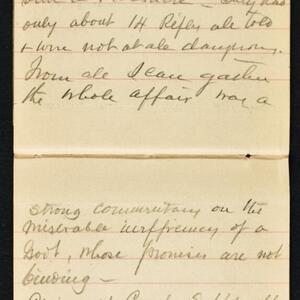 only about 14 Rifles all told
& were not at all dangerous.
From all I can gather
the whole affair was a
strong commentary on the
miserable inefficiency of a
Govt, whose promises are not
binding —